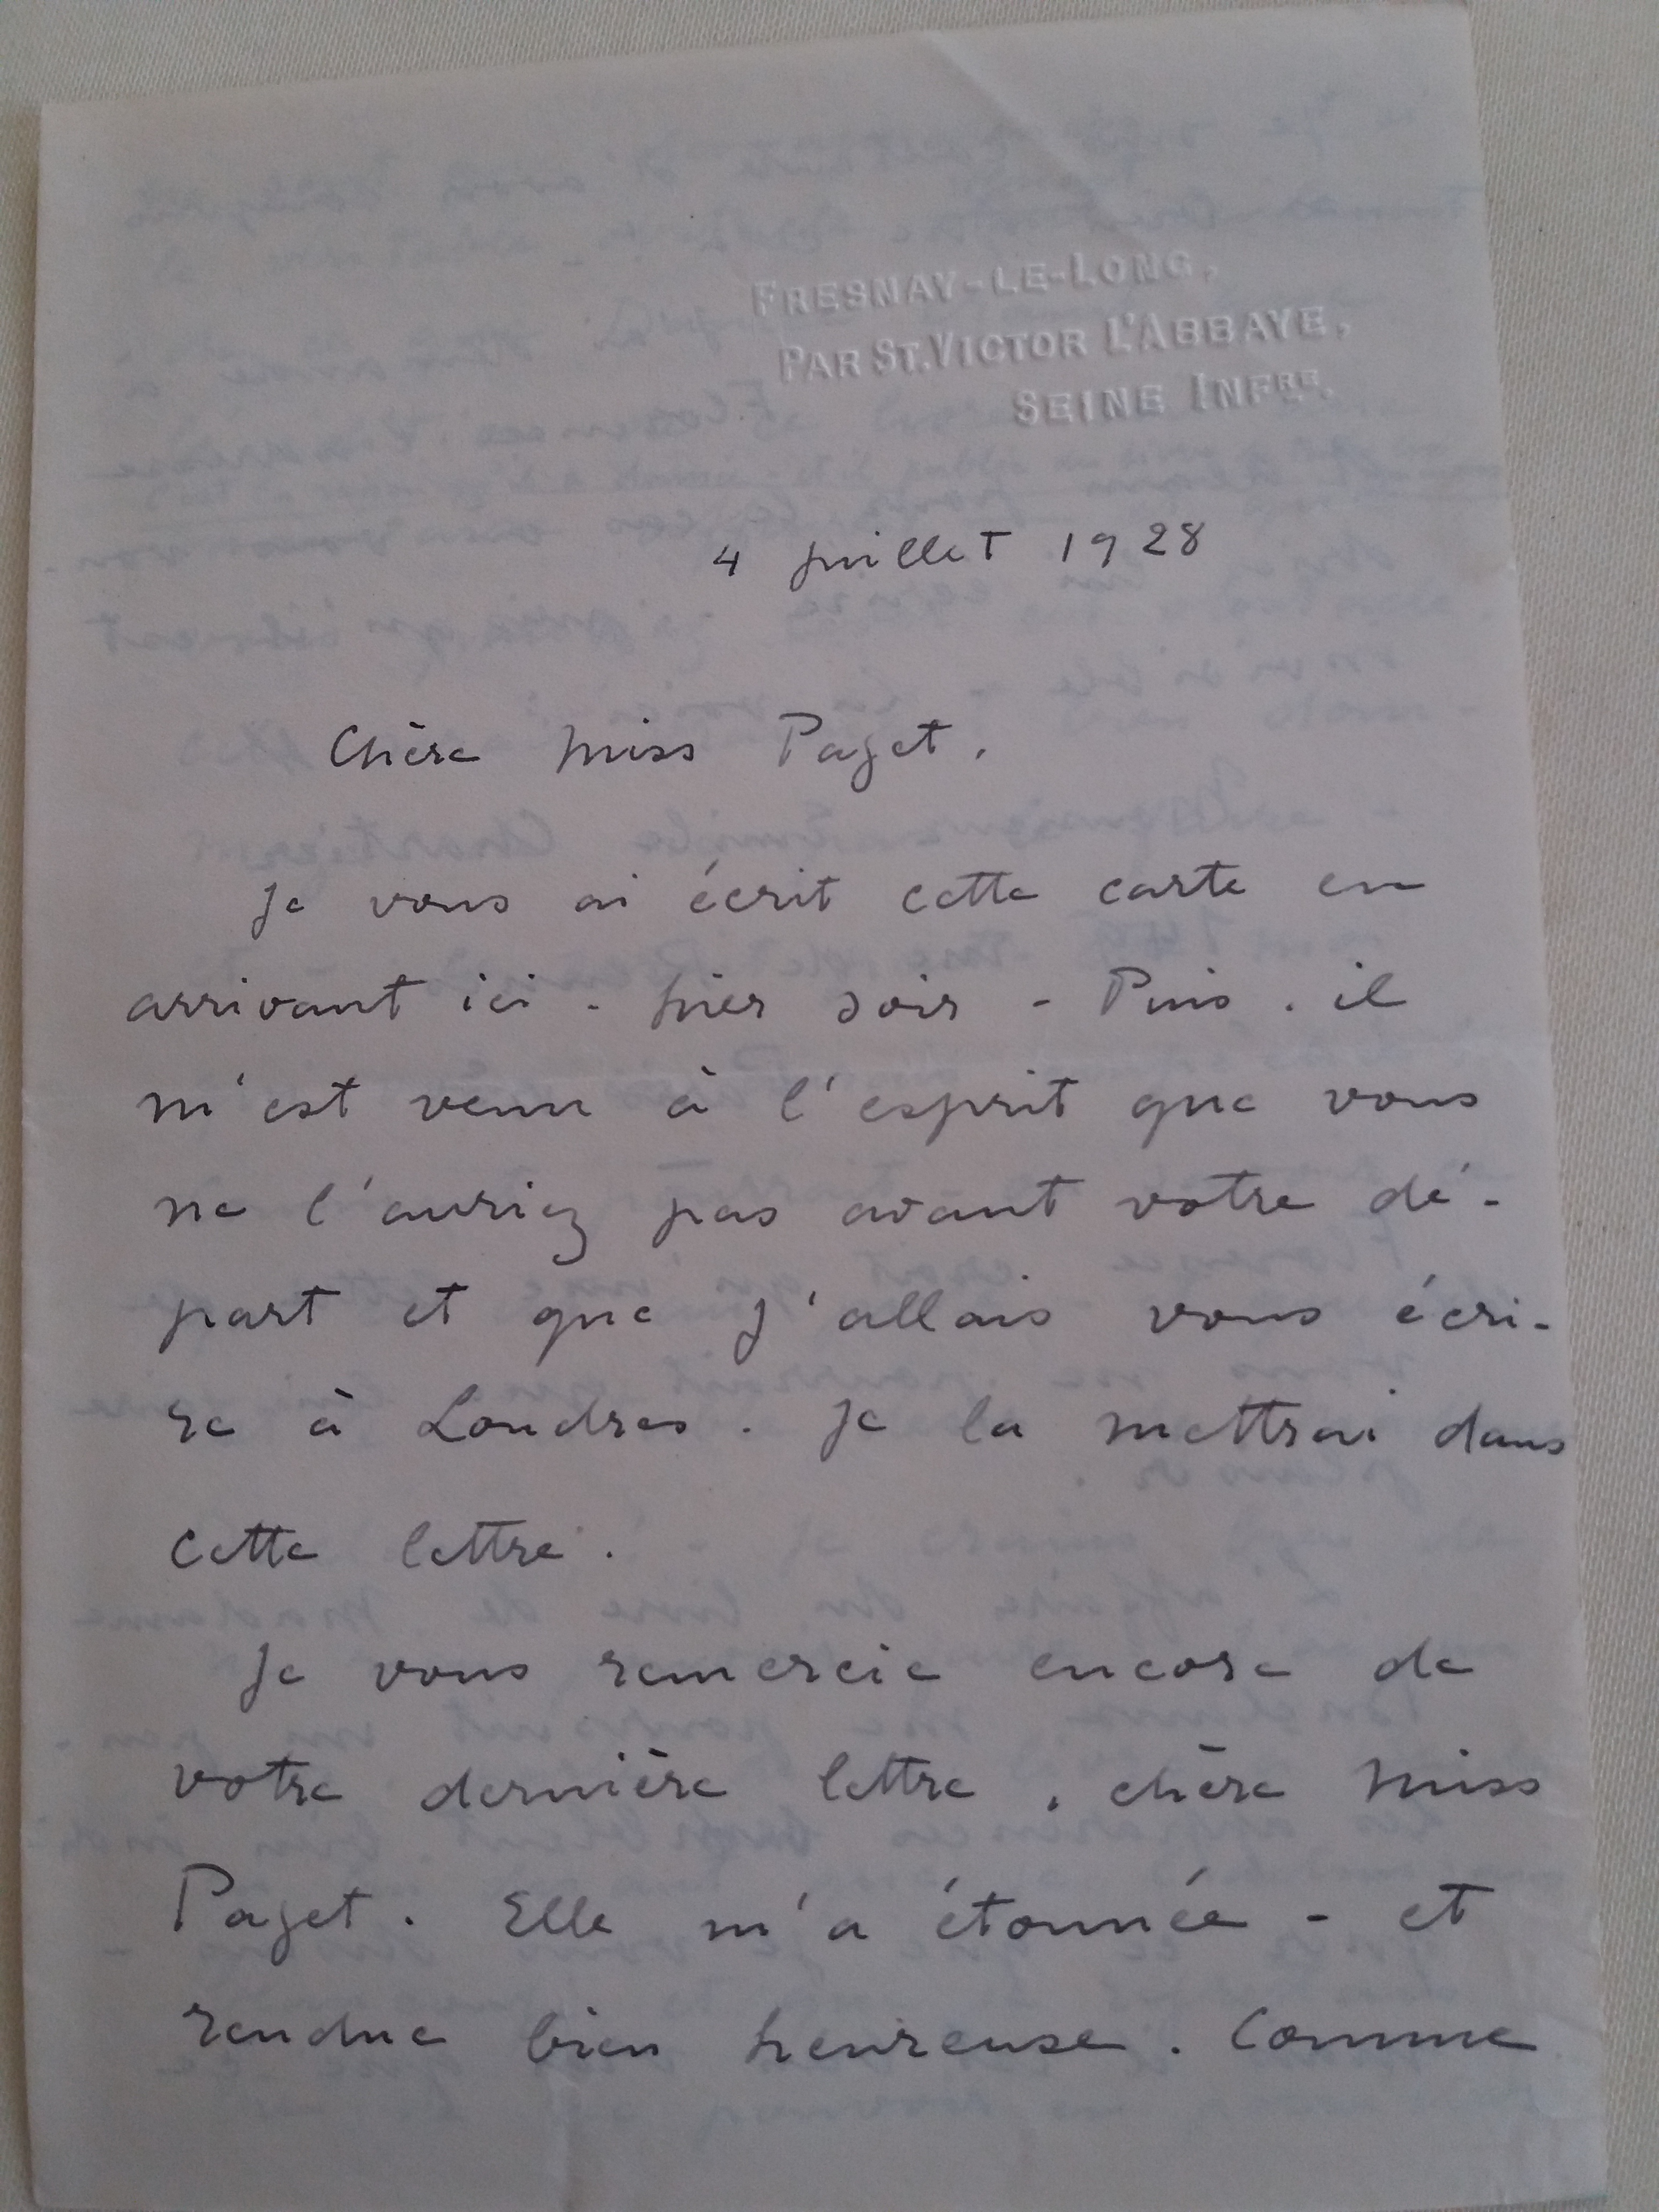 FRESNAY-LE-LONG,
PAR ST. VICTOR L'ABBAYE,
SEINE INFRE.
4 juillet 1928
Chère Miss Paget,
Je vous ai écrit cette carte en
arrivant ici - hier soir - Puis, il
m'est venu à l'esprit que vous
ne l'auriez pas avant votre dé-
part et que j'allais vous écri-
re à Londres. Je la mettrai dans
cette lettre.
Je vous remercie encore de
votre dernière lettre, chère Miss
Paget. Elle m'a étonnée - et
rendue bien heureuse. Comme